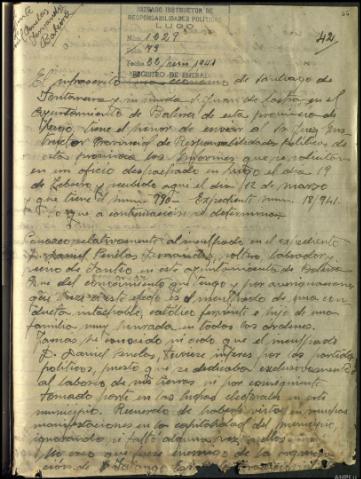 JUZGADO INSTRUCTOR DE
RESPONSABILIDADES POLITICAS
LUGO
Núm. 1829
79
Fecha 30 1941
REGISTRO DE ENTRADA
42
El infrascrito de Santiago de
Fontaneira y su unida S. Juan de Lastra, en el
Ayuntamiento de Baleira de esta provincia de
Lugo, tiene el honor de enviar al Sr. Juez Ins
tructor Provincial de Responsabilidades políticas de
esta provincia los informes que se solicitan
en un oficio despachado en Lugo el día 19
de Febrero y recibido aquí el día 12 de marzo
y que tiene el num. 790 Expediente num. 18/941.
que a continuación se determinan
Conozco relativamente al inculpado en el expediente
D. Manuel Fernández, soltero, labrador y
vecino de en este ayuntamiento de Baleira
Que del conocimiento que tengo y por averiguaciones
que hice a este efecto es el inculpado de una con
ducta intachable, católico ferviente e hijo de una
familia muy honrada en todos los órdenes.
Jamás he conocido ni oído que el inculpado
D. Manuel tuviese interés por los partidos
políticos, puesto que se dedicaba exclusivamente
al laboreo de sus tierras ni por consiguiente
tomado parte en las luchas electorales en este
municipio. Recuerdo de haberle visto en muchas
manifestaciones en la capitalidad del municipio,
ignorando si faltó alguna vez a ellas.
No creo que fuese enemigo de la organiza
ción de Falange